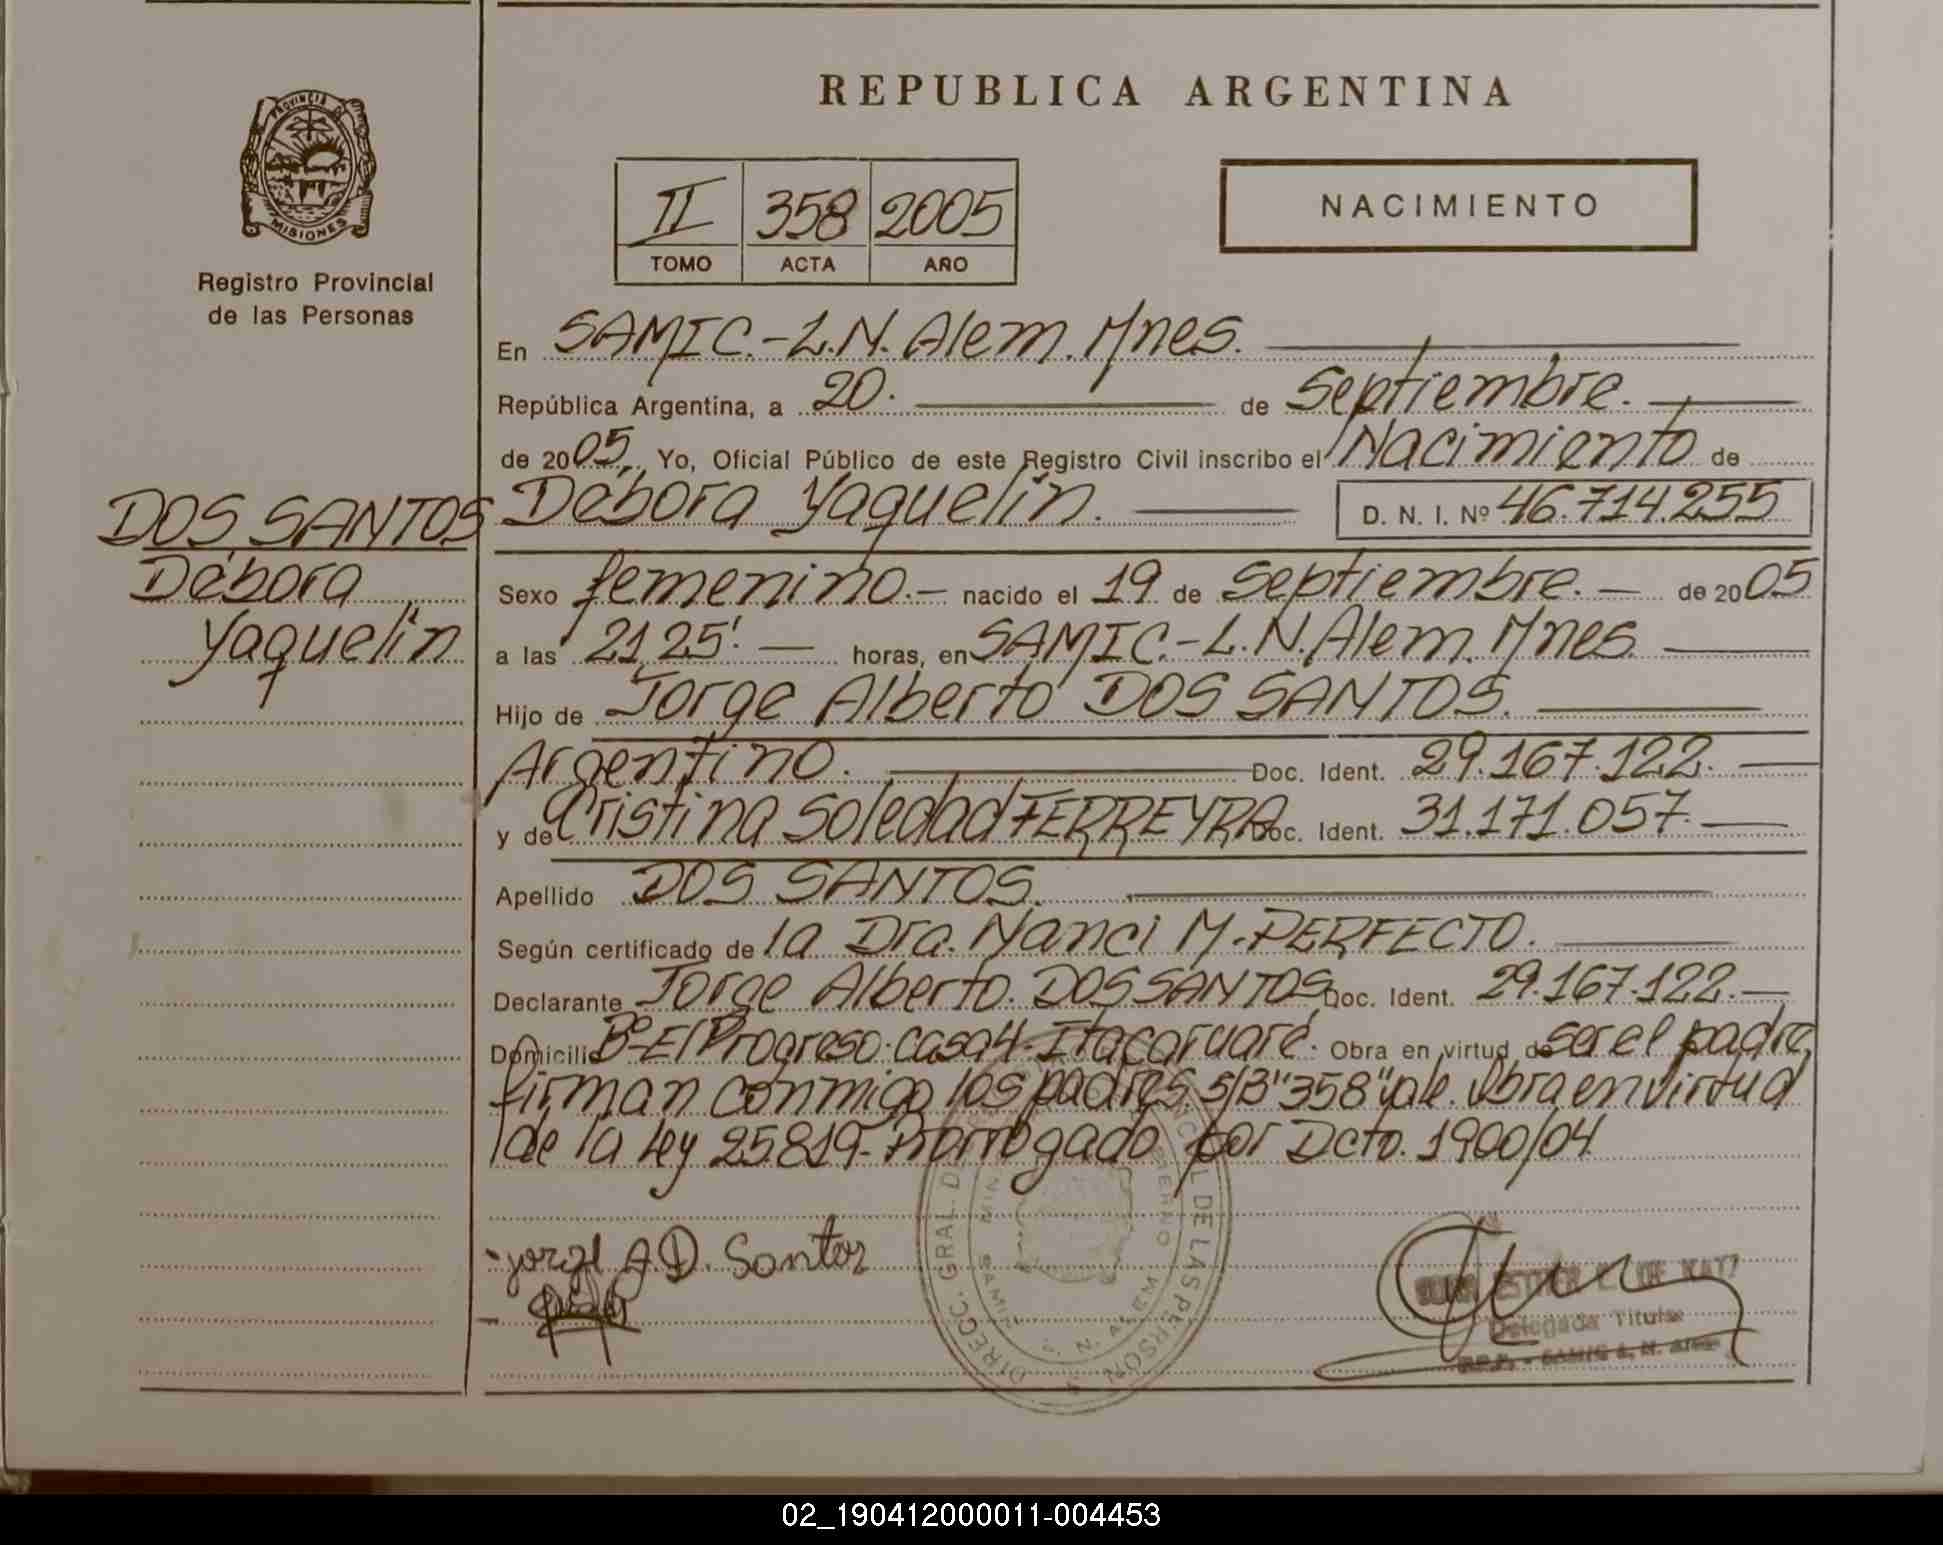 REPUBLICA ARGENTINA
PROVINCIA DE
MISIONES
Registro Provincial
de las Personas
II 358 2005
TOMO ACTA AÑO
NACIMIENTO
En SAMIC.-L.N. Alem. Mnes.
República Argentina, a 20. de Septiembre.
de 2005, Yo, Oficial Público de este Registro Civil inscribo el Nacimiento de
DOS SANTOS
Débora
Yaquelin
Débora Yaquelin. D. N. I. Nº 46.714.255
Sexo femenino.- nacido el 19 de Septiembre. de 2005
a las 21,25'. horas, en SAMIC.-L.N. Alem. Mnes.
Hijo de Jorge Alberto DOS SANTOS.
Argentino. Doc. Ident. 29.167.122.
y de Cristina Soledad FERREYRA Doc. Ident. 31.171.057.
Apellido DOS SANTOS.
Según certificado de la Dra. Nanci M. PERFECTO.
Declarante Jorge Alberto. DOS SANTOS, Doc. Ident. 29.167.122.
Domicilio Bº El Progreso. casa 4. Itacaruaré. Obra en virtud de ser el padre,
firman conmigo los padres. S/B "358" vale. Obra en virtud
de la Ley 25.819. Prorrogado por Dcto. 1900/04
Jorge A D. Santos
DIRECC. GRAL. DE LAS PERSON
SAMIC L. N. ALEM
ESTHER DE KATZ
Delegada Titular
R.P.P. - SAMIC L. N. Alem
02_190412000011-004453